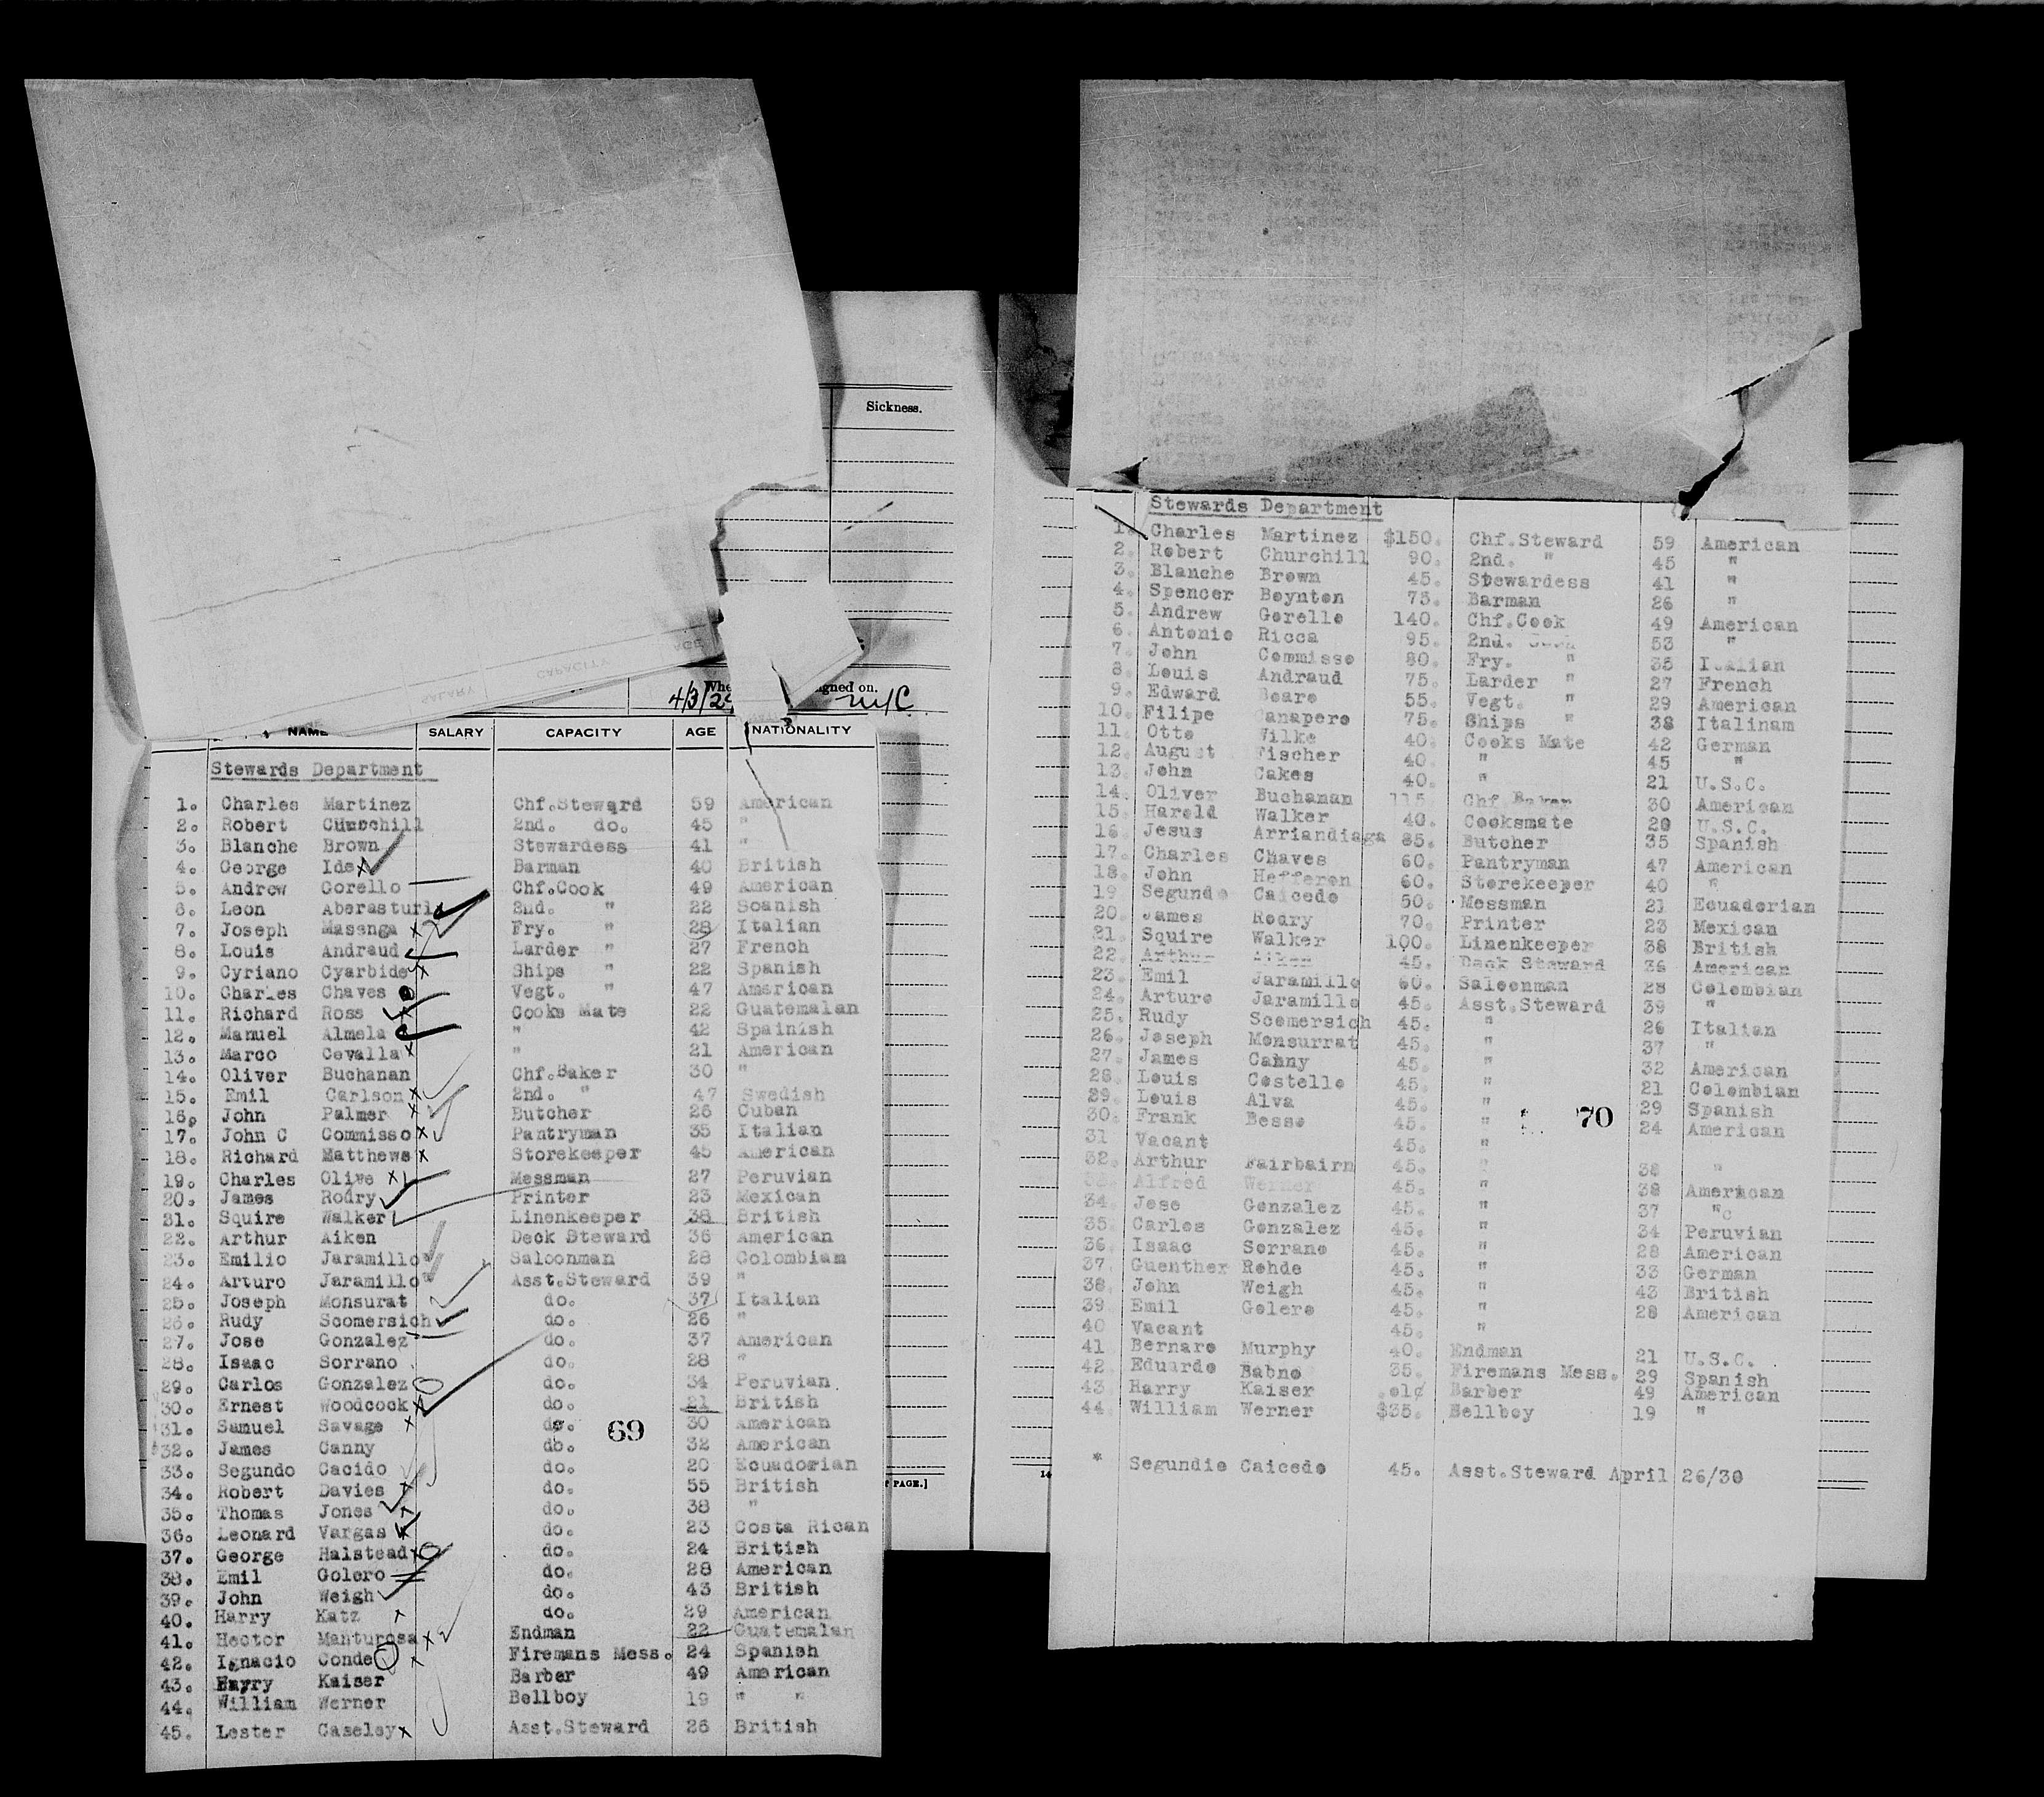 Sickness.
4/3/29
signed on.
NYC
NAME SALARY CAPACITY AGE NATIONALITY
Stewards Department
1. Charles Martinez Chf.Steward 59 American
2. Robert Churchill 2nd. do. 45 "
3. Blanche Brown Stewardess 41 "
4. George Ide x Barman 40 British
5. Andrew Gorello Chf.Cook 49 American
6. Leon Aberasturi 2nd. " 22 Soanish
7. Joseph Masenga x Fry. " 28 Italian
8. Louis Andraud Larder " 27 French
9. Cyriano Cyarbide x Ships " 22 Spanish
10. Charles Chaves Vegt. " 47 American
11. Richard Ross x Cooks Mate 22 Guatemalan
12. Manuel Almela " 42 Spainish
13. Marco Cevalla x " 21 American
14. Oliver Buchanan Chf.Baker 30 "
15. Emil Carlson x 2nd. " 47 Swedish
16. John Palmer x Butcher 26 Cuban
17. John C Commisso x Pantryman 35 Italian
18. Richard Matthews x Storekeeper 45 American
19. Charles Olive x Messman 27 Peruvian
20. James Rodry Printer 23 Mexican
21. Squire Walker Linenkeeper 38 British
22. Arthur Aiken Deck Steward 36 American
23. Emilio Jaramillo Saloonman 28 Colombian
24. Arturo Jaramillo Asst.Steward 39 "
25. Joseph Monsurat do. 37 Italian
26. Rudy Scomersich do. 26 "
27. Jose Gonzalez do. 37 American
28. Isaac Sorrano do. 28 "
29. Carlos Gonzalez do. 34 Peruvian
30. Ernest Woodcock x do. 21 British
31. Samuel Savage x do. 30 American
69
32. James Canny do. 32 American
33. Segundo Cacido do. 20 Ecuadorian
34. Robert Davies x do. 55 British
35. Thomas Jones x do. 38 "
36. Leonard Vargas x do. 23 Costa Rican
37. George Halstead x do. 24 British
38. Emil Golero do. 28 American
39. John Weigh do. 43 British
40. Harry Katz x do. 29 American
41. Hector Manturosa x Endman 22 Guatemalan
42. Ignacio Conde x Firemans Mess. 24 Spanish
43. Harry Kaiser Barber 49 American
44. William Werner Bellboy 19 " "
45. Lester Caseley x Asst.Steward 26 British
PAGE.]
Stewards Department
1. Charles Martinez $150. Chf.Steward 59 American
2. Robert Churchill 90. 2nd. " 45 "
3. Blanche Brown 45. Stewardess 41 "
4. Spencer Boynton 75. Barman 26 "
5. Andrew Gorello 140. Chf.Cook 49 American
6. Antonio Ricca 95. 2nd. 53 "
7. John Commisso 80. Fry. " 35 Italian
8. Louis Andraud 75. Larder " 27 French
9. Edward Beare 55. Vegt. " 29 American
10. Filipe Canapero 75. Ships " 38 Italinam
11. Otto Wilke 40. Cooks Mate 42 German
12. August Fischer 40. " 45 "
13. John Cakes 40. " 21 U.S.C.
14. Oliver Buchanan 115. Chf Baker 30 American
15. Harold Walker 40. Cooksmate 20 U.S.C.
16. Jesus Arriandiaga 85. Butcher 35 Spanish
17. Charles Chaves 60. Pantryman 47 American
18. John Hefferon 60. Storekeeper 40 "
19 Segundo Caicedo 50. Messman 21 Ecuadorian
20. James Rodry 70. Printer 23 Mexican
21. Squire Walker 100. Linenkeeper 38 British
22. Arthur Aiken 45. Deck Steward 36 American
23. Emil Jaramillo 60. Saloonman 28 Colombian
24. Arturo Jaramillo 45. Asst.Steward 39 "
25. Rudy Scomersich 45. " 26 Italian
26. Joseph Monsurrat 45. " 37 "
27. James Canny 45. " 32 American
28. Louis Costello 45. " 21 Colombian
29. Louis Alva 45. " 29 Spanish
70
30. Frank Besso 45. " 24 American
31 Vacant 45. "
32. Arthur Fairbairn 45. " 38 "
33. Alfred Werner 45. " 38 American
34. Jose Gonzalez 45. " 37 "
35. Carlos Gonzalez 45. " 34 Peruvian
36. Isaac Sorrano 45. " 28 American
37. Guenther Rohde 45. " 33 German
38. John Weigh 45. " 43 British
39. Emil Golero 45. " 28 American
40 Vacant 45. "
41 Bernaro Murphy 40. Endman 21 U.S.C.
42. Eduardo Babno 35. Firemans Mess. 29 Spanish
43. Harry Kaiser .01¢ Barber 49 American
44. William Werner $35. Bellboy 19 "
* Segundio Caicedo 45. Asst.Steward April 26/30